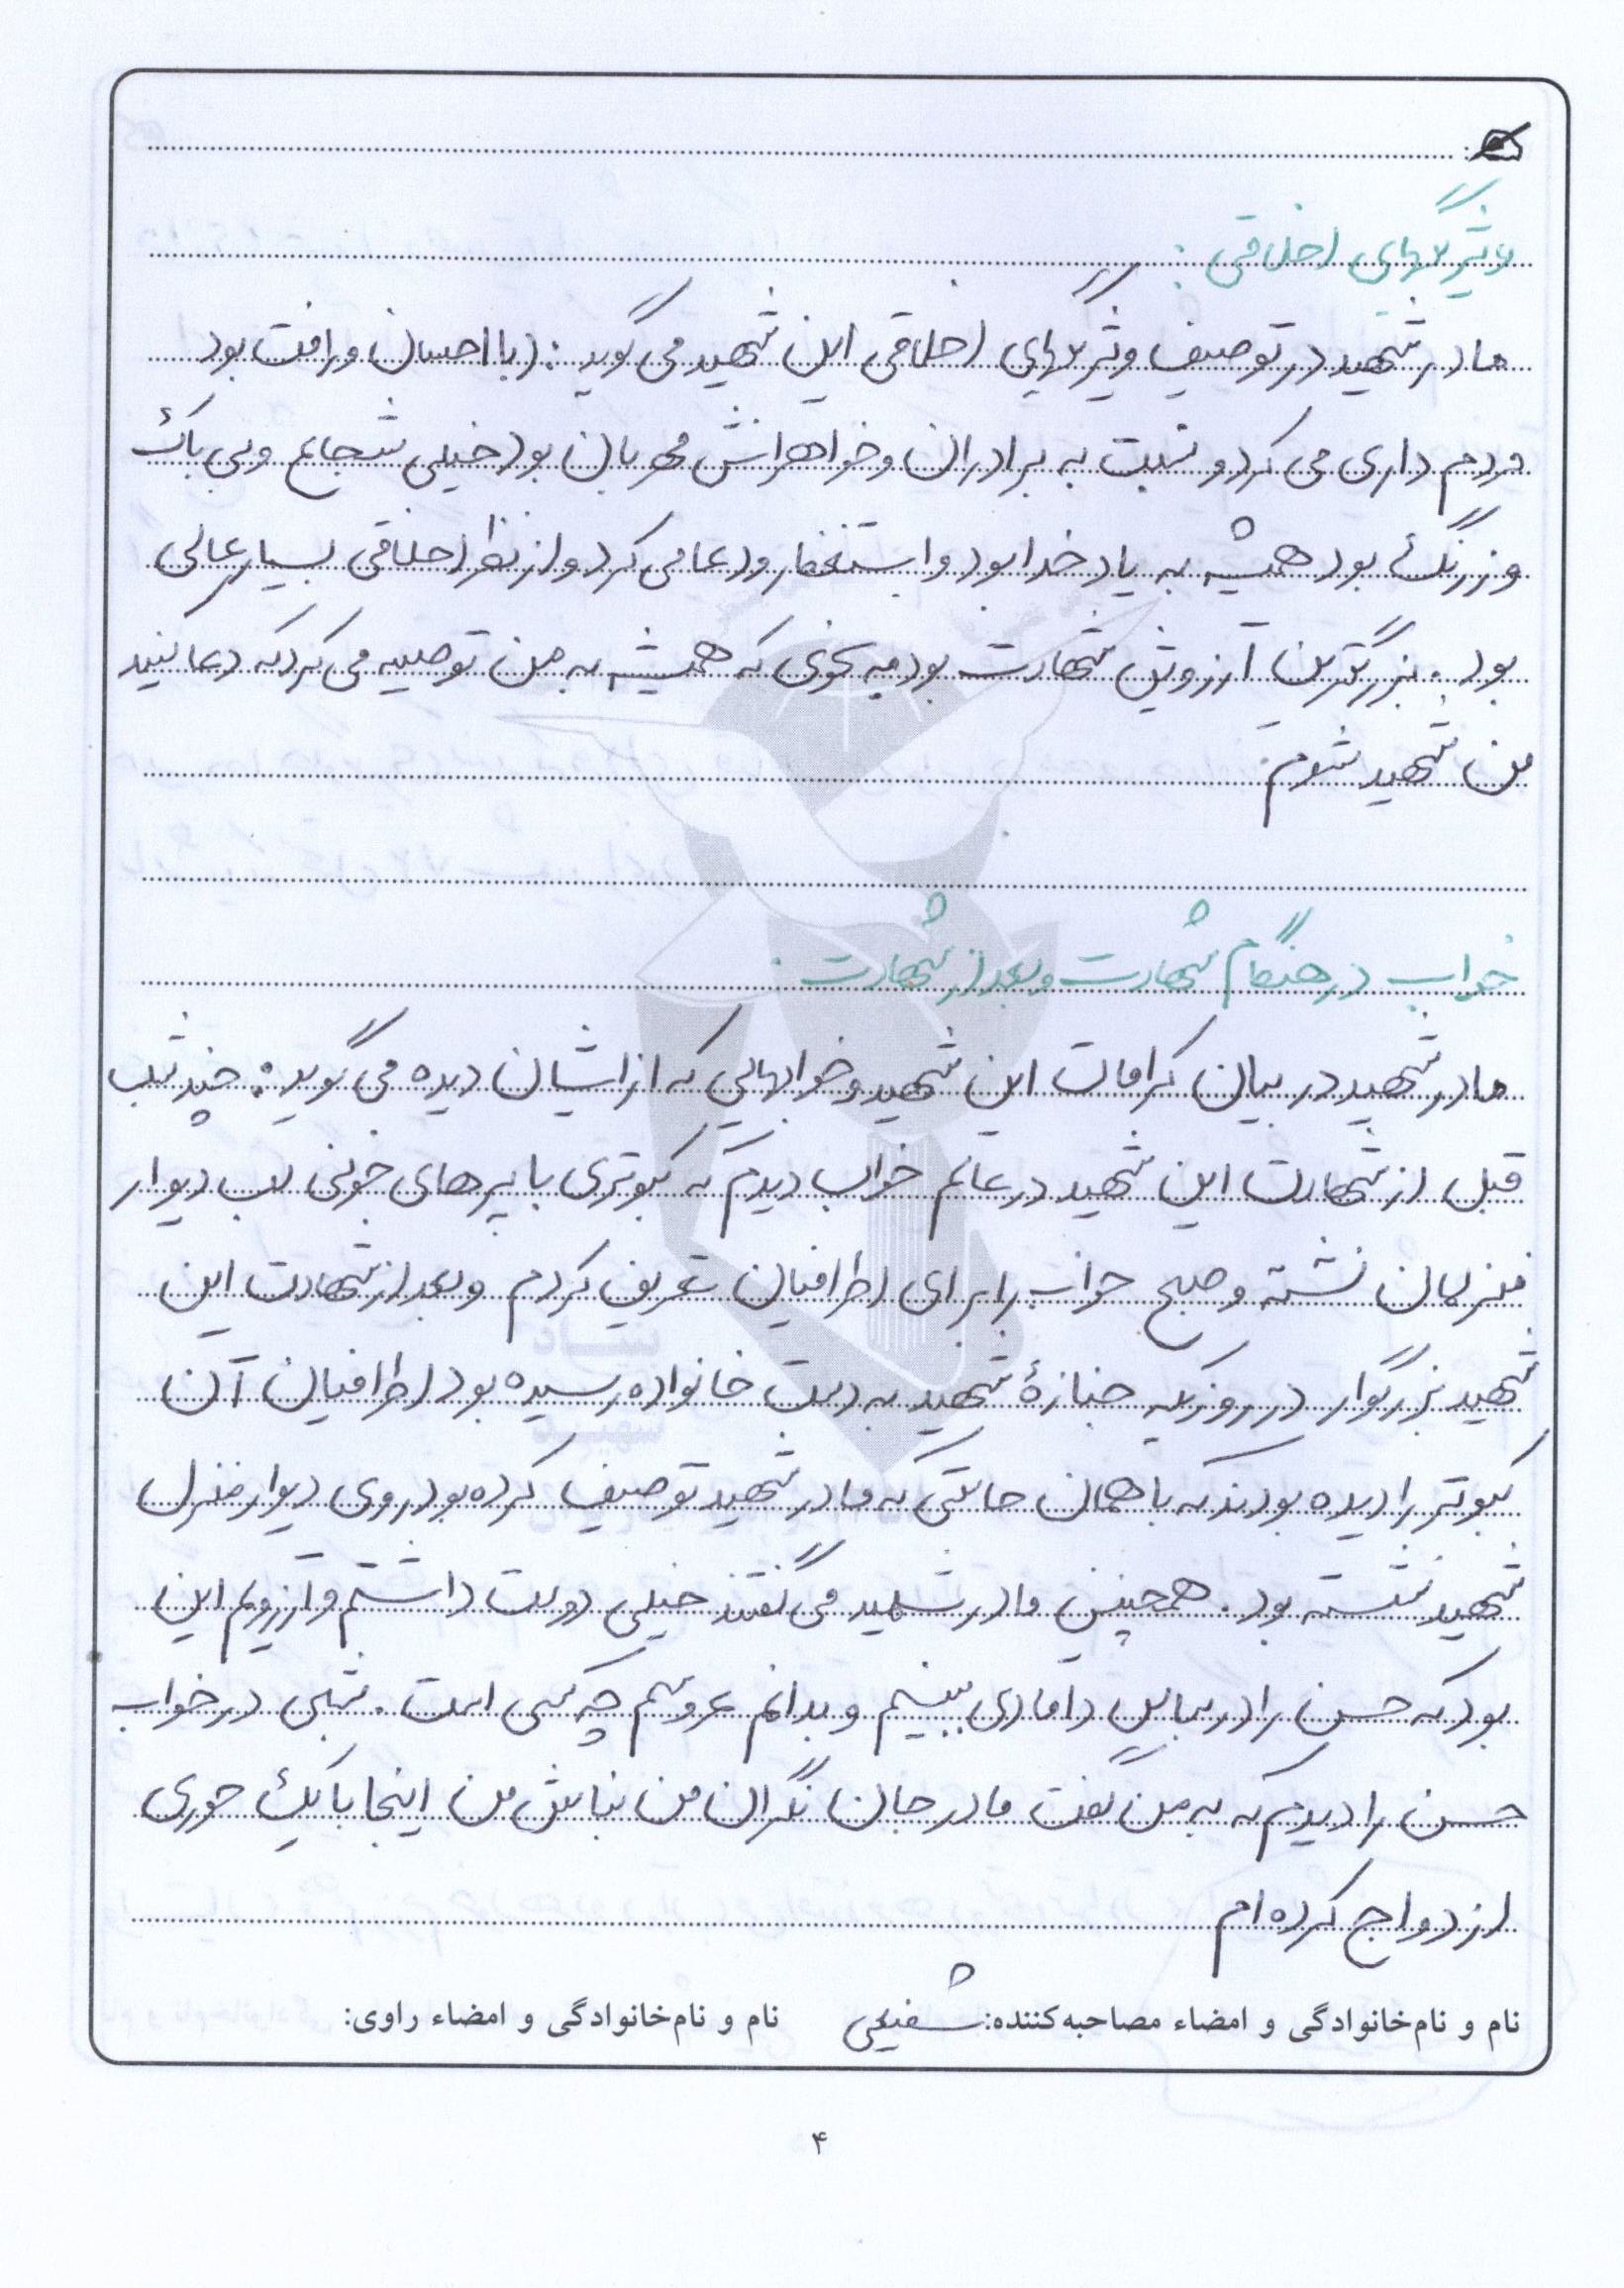 ویژگیهای اخلاقی :
مادر شهید در توصیف ویژگیهای اخلاقی این شهید می گوید : ( با احسان و رافت بود
مردم داری می کرد و نسبت به برادران و خواهرانش مهربان بود خیلی شجاع و بی باک
و زرنگ بود همیشه به یاد خدا بود و استغفار و دعا می کرد و از نظر اخلاقی بسیار عالی
بود . بزرگترین آرزویش شهادت بود به نحوی که همیشه به من توصیه می کرد که دعا کنید
من شهید شوم .
خواب در هنگام شهادت و بعد از شهادت :
مادر شهید در بیان کرامات این شهید و خوابهایی که از ایشان دیده می گوید : چند شب
قبل از شهادت این شهید در عالم خواب دیدم که کبوتری با پرهای خونی لب دیوار
منزلمان نشسته و صبح خواب را برای اطرافیان تعریف کردم و بعد از شهادت این
شهید بزرگوار در روزیکه جنازهٔ شهید به دست خانواده رسیده بود اطرافیان آن
کبوتر را دیده بودند که با همان حالتی که مادر شهید توصیف کرده بود روی دیوار منزل
شهید نشسته بود . همچنین مادر شهید می گفتند خیلی دوست داشتم و آرزویم این
بود که حسن را در لباس دامادی ببینم و بدانم عروسم چه کسی است . شبی در خواب
حسن را دیدم که به من گفت مادر جان نگران من نباش من اینجا با یک حوری
ازدواج کرده ام
نام و نام‌خانوادگی و امضاء مصاحبه‌کننده: شفیعی نام و نام‌خانوادگی و امضاء راوی:
۴